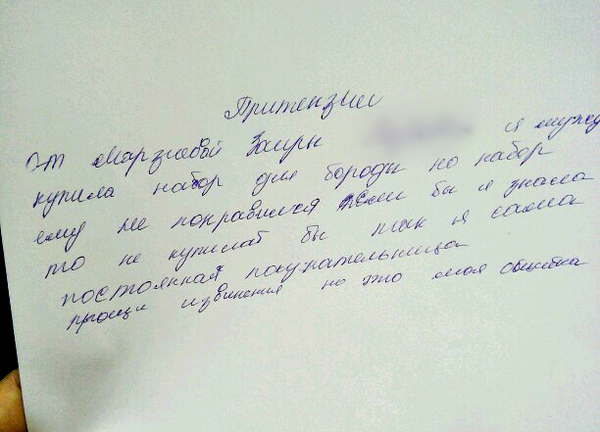 Притензии
От Марзиевой Заиры я мужу
купила набор для бороды но набор
ему не понравился если бы я знала
то не купилаб бы так я сама
постоянная покупательница
прощи извинения но это моя ошибка